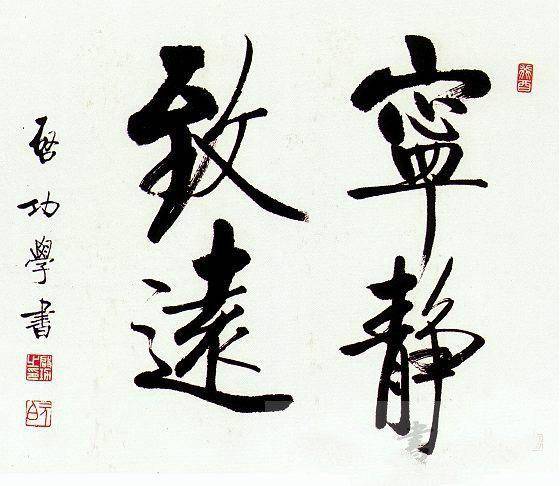 寧靜
致遠
启功學書